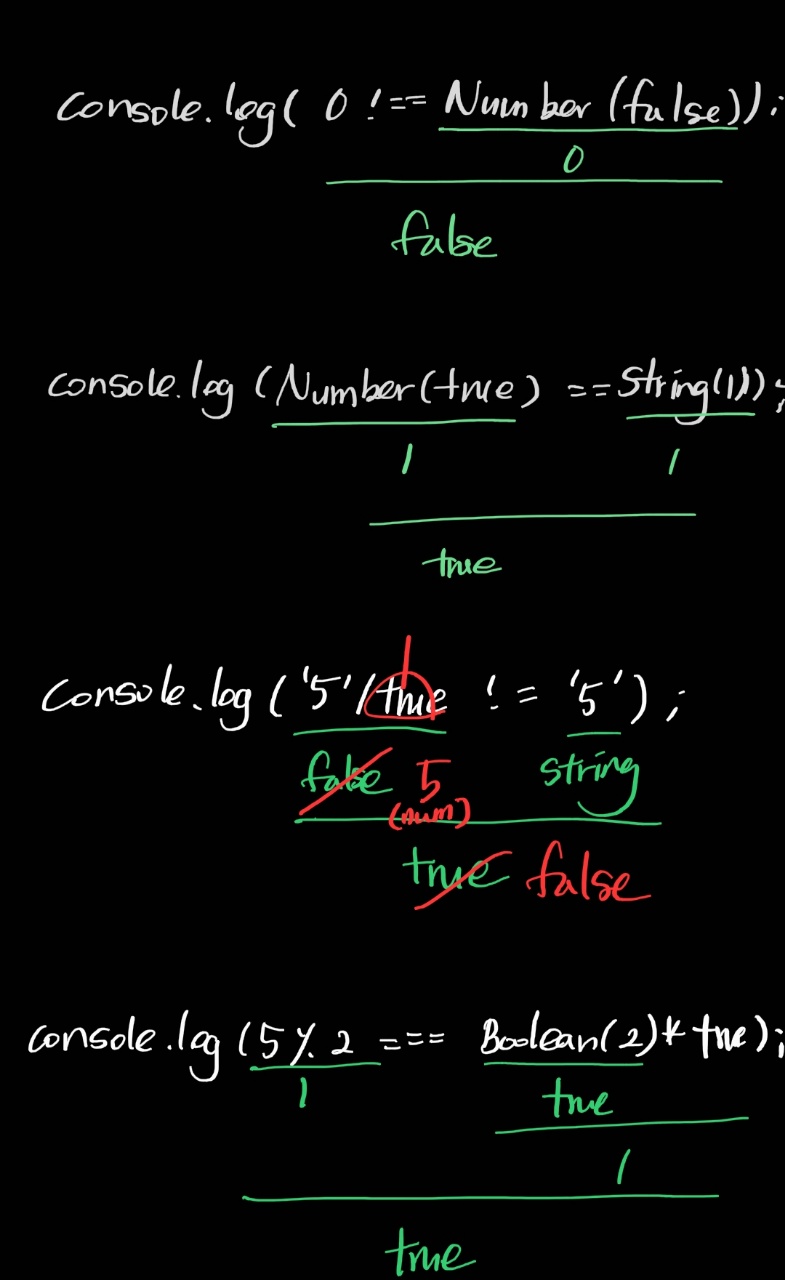 console.log( 0 !== Number(false));
0
false
console.log (Number(true) == String(1));
1 1
true
1
console.log ('5'/true != '5');
false 5 string
(num)
true false
console.log (5 % 2 === Boolean(2)* true);
1 true
1
true